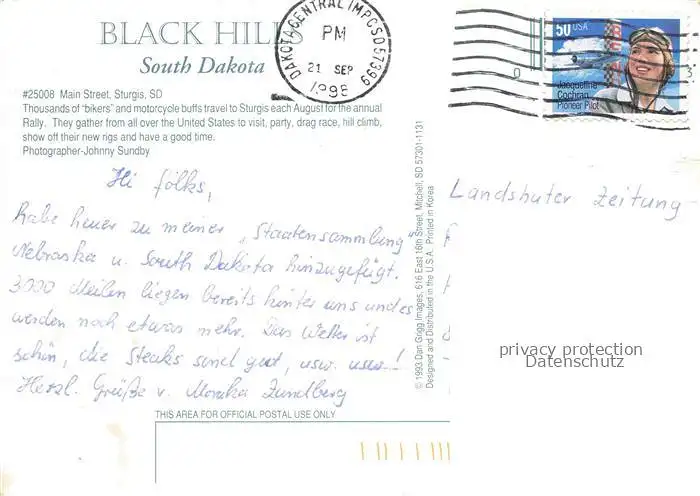 BLACK HILLS
South Dakota
#25008 Main Street, Sturgis, SD
Thousands of "bikers" and motorcycle buffs travel to Sturgis each August for the annual
Rally. They gather from all over the United States to visit, party, drag race, hill climb,
show off their new rigs and have a good time.
Photographer-Johnny Sundby
DAKOTA CENTRAL IMPC SD 57399
PM
21 SEP
1998
50 USA
Jacqueline
Cochran
Pioneer Pilot
Hi folks,
habe heuer zu meiner „Staatensammlung"
Nebraska u. South Dakota hinzugefügt.
3000 Meilen liegen bereits hinter uns und es
werden noch etwas mehr. Das Wetter ist
schön, die Steaks sind gut, usw. usw.!
Herzl. Grüße v. Monika Zundlberg
Landshuter Zeitung
© 1993 Dan Grigg Images, 616 East 16th Street, Mitchell, SD 57301-1131
Designed and Distributed in the U.S.A. Printed in Korea
privacy protection
Datenschutz
THIS AREA FOR OFFICIAL POSTAL USE ONLY